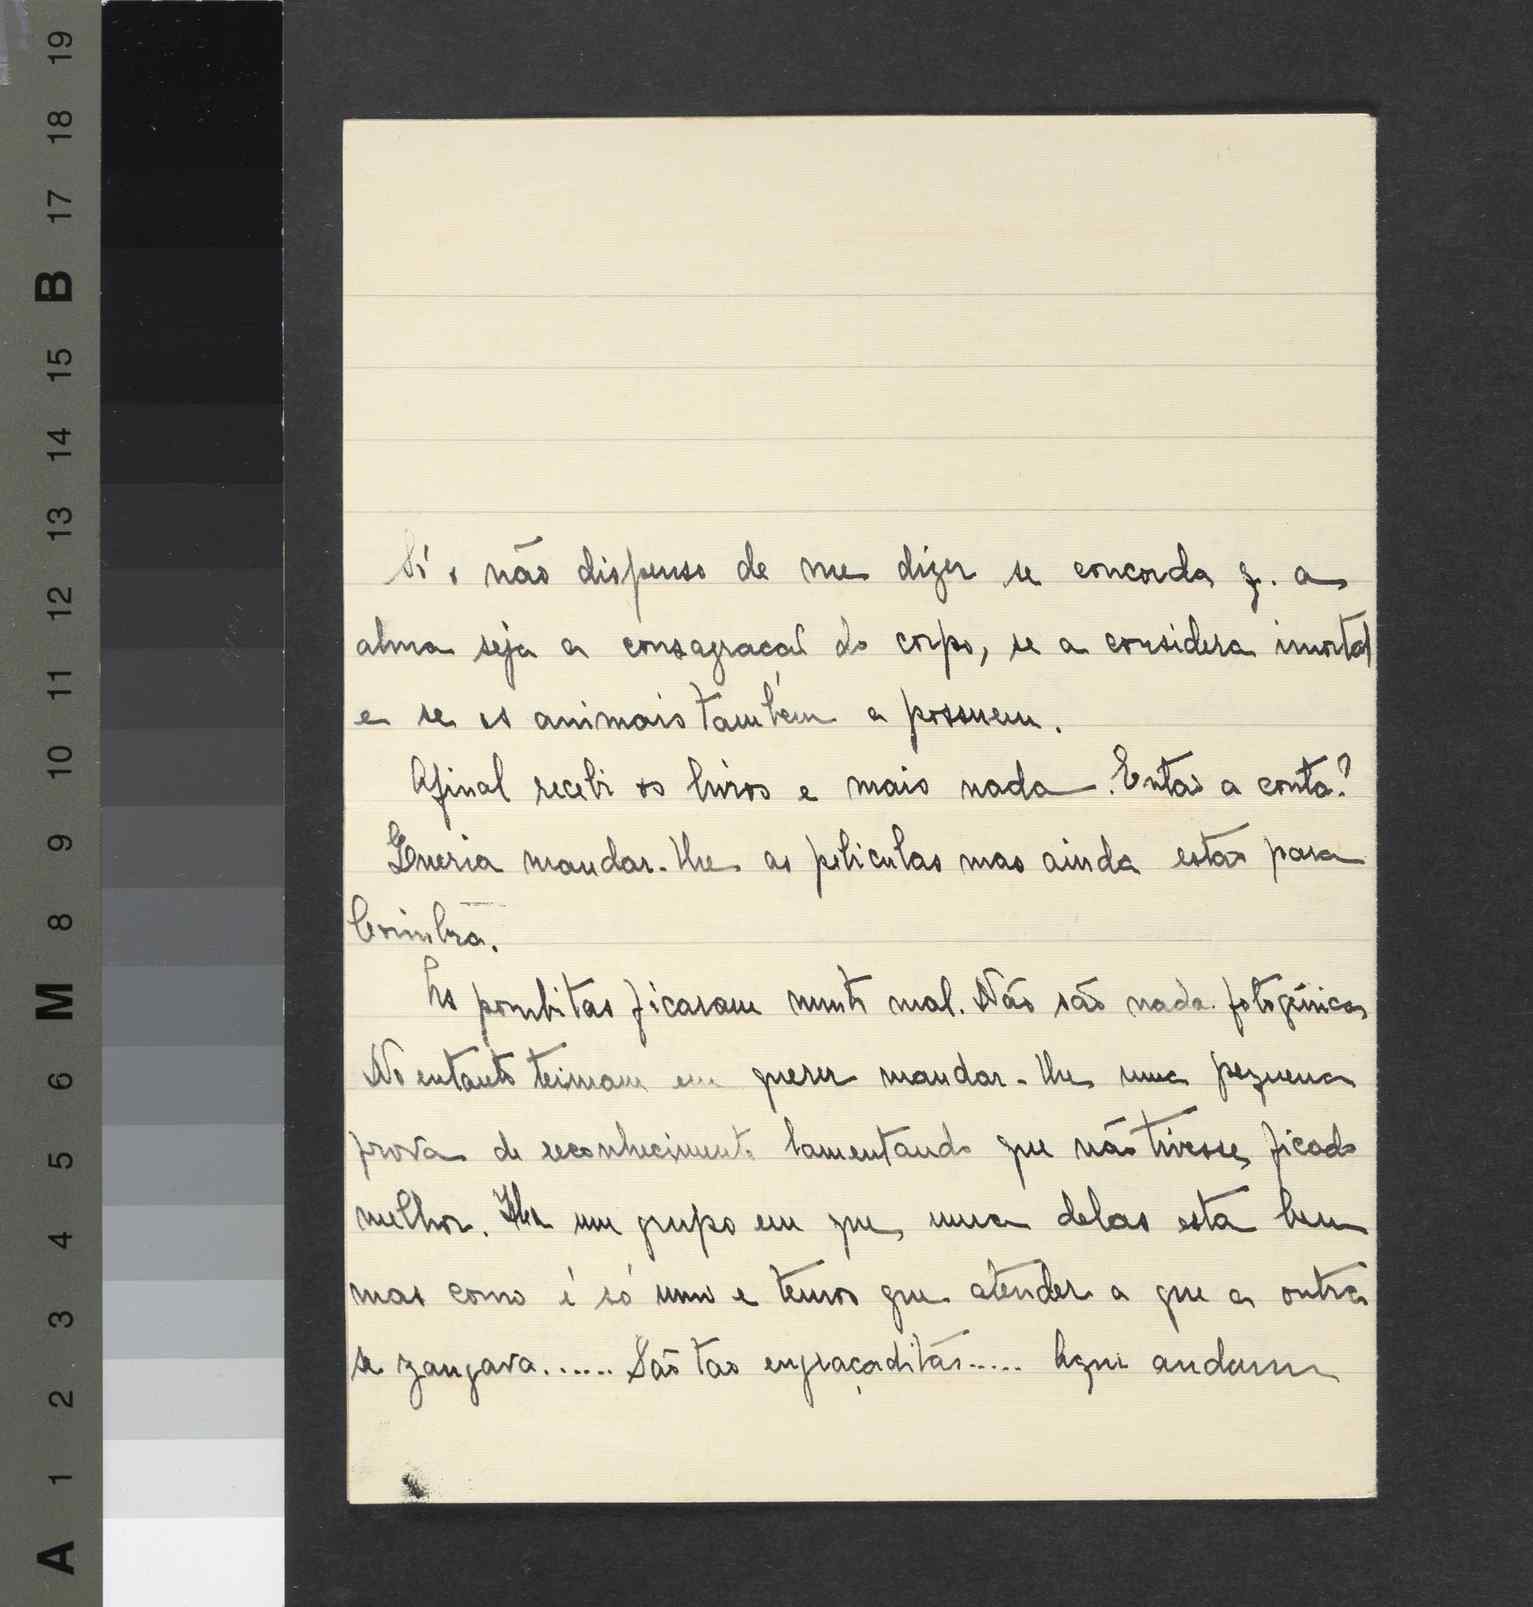 Só o não dispenso de me dizer se concorda q. a
alma seja a consagração do corpo, se a considera imortal
e se os animais também a possuem.
Afinal recebi os livros e mais nada. Então a conta?
Queria mandar-lhe as peliculas mas ainda estão para
Coimbra.
As pombitas ficaram muito mal. Não são nada fotogénicas
No entanto teimam em querer mandar-lhe uma pequena
prova de reconhecimento lamentando que não tivesse ficado
melhor. Ha um grupo em que uma delas está bem
mas como é só um e temos que atender a que a outra
se zangava...... São tão engraçaditas..... Aqui andam
A 1 2 3 4 5 6 M 8 9 10 11 12 13 14 15 B 17 18 19